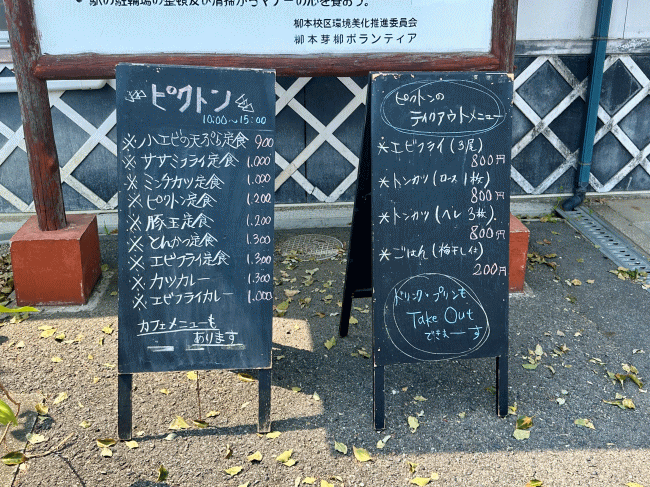 駅の駐輪場の整頓及び清掃からマナーの心を養おう。
柳本校区環境美化推進委員会
柳本芽柳ボランティア
ピクトン
10:00～15:00
※小エビの天ぷら定食 900
※ササミフライ定食 1.000
※ミンチカツ定食 1.000
※ピクトン定食 1.200
※豚玉定食 1.200
※とんかつ定食 1.300
※エビフライ定食 1.300
※カツカレー 1.300
※エビフライカレー 1.000
カフェメニューも
あります
ピクトンの
テイクアウトメニュー
*エビフライ(3尾)
800円
*トンカツ(ロース1枚)
800円
*トンカツ(ヘレ3枚)
800円
*ごはん(梅干し付)
200円
ドリンク・プリンも
Take Out
できまーす